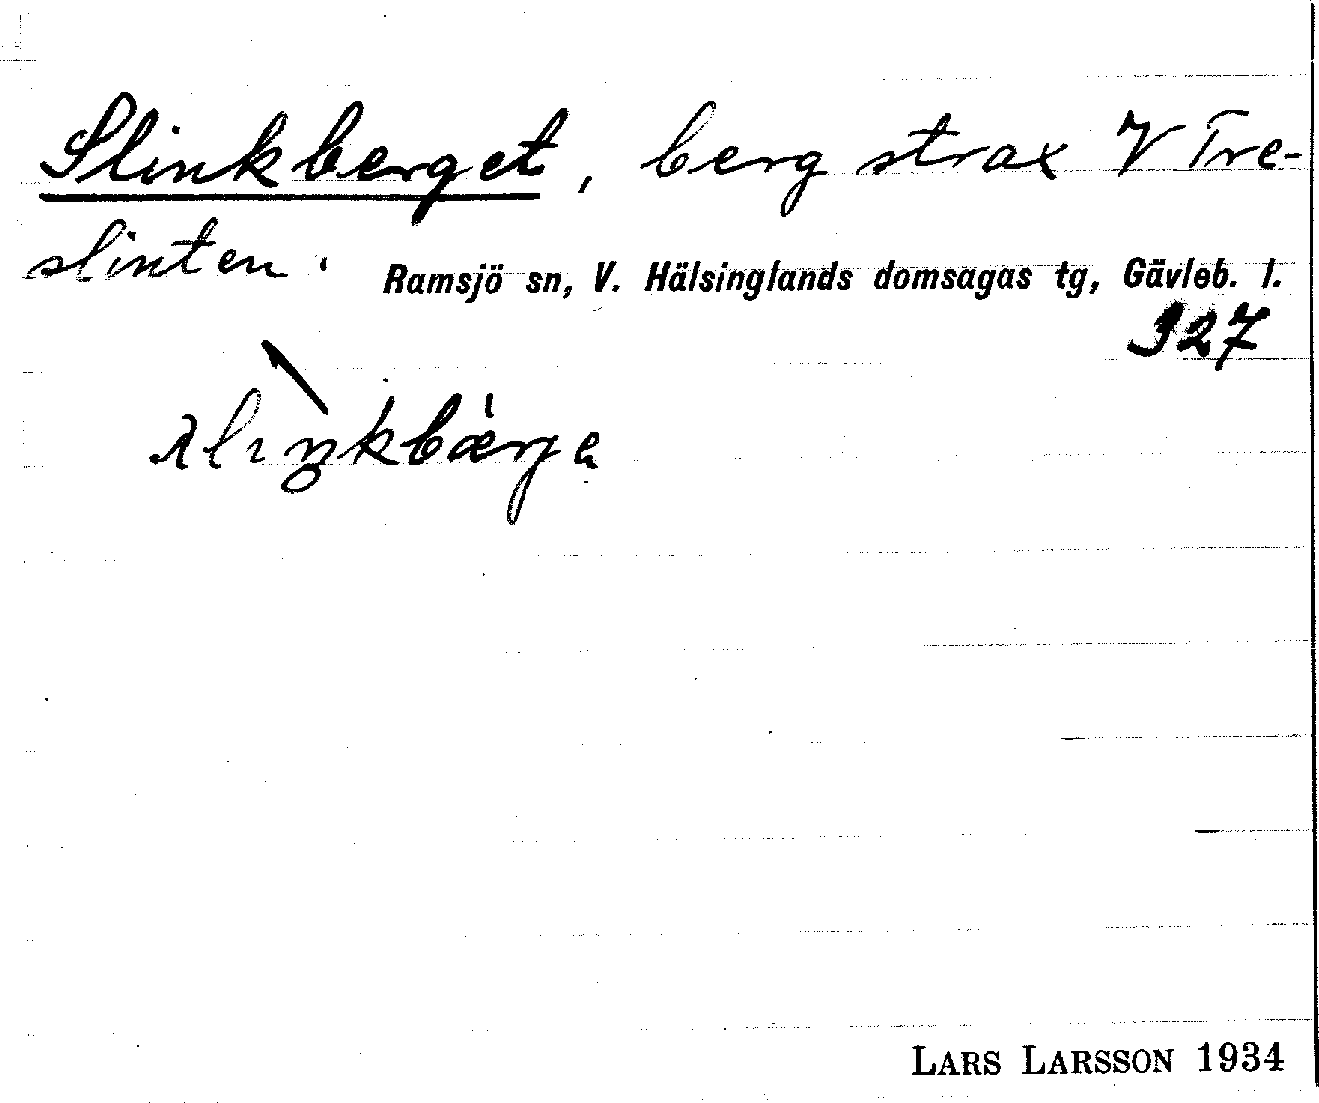 Slinkberget, berg strax V Tre-
slinten.
Ramsjö sn, V. Hälsinglands domsagas tg, Gävleb. l.
927
LARS LARSSON 1934